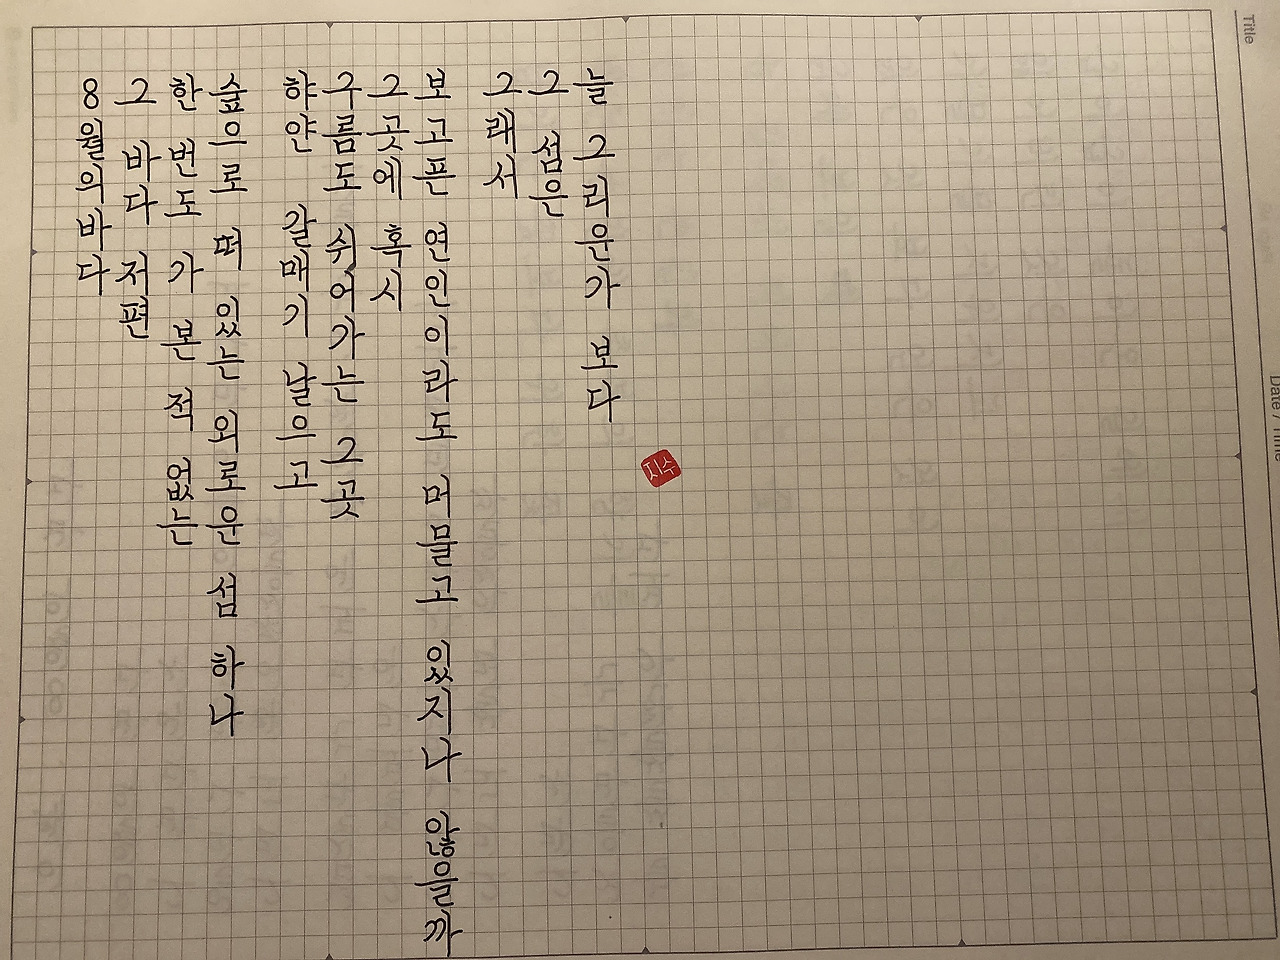 8월의바다
그 바다 저편
한 번도 가 본 적 없는
숲으로 떠 있는 외로운 섬 하나
햐얀 갈매기 날으고
구름도 쉬어가는 그곳
그곳에 혹시
보고픈 연인이라도 머물고 있지나 않을까
그래서
그 섬은
늘 그리운가 보다
지수
Title
Date / Time